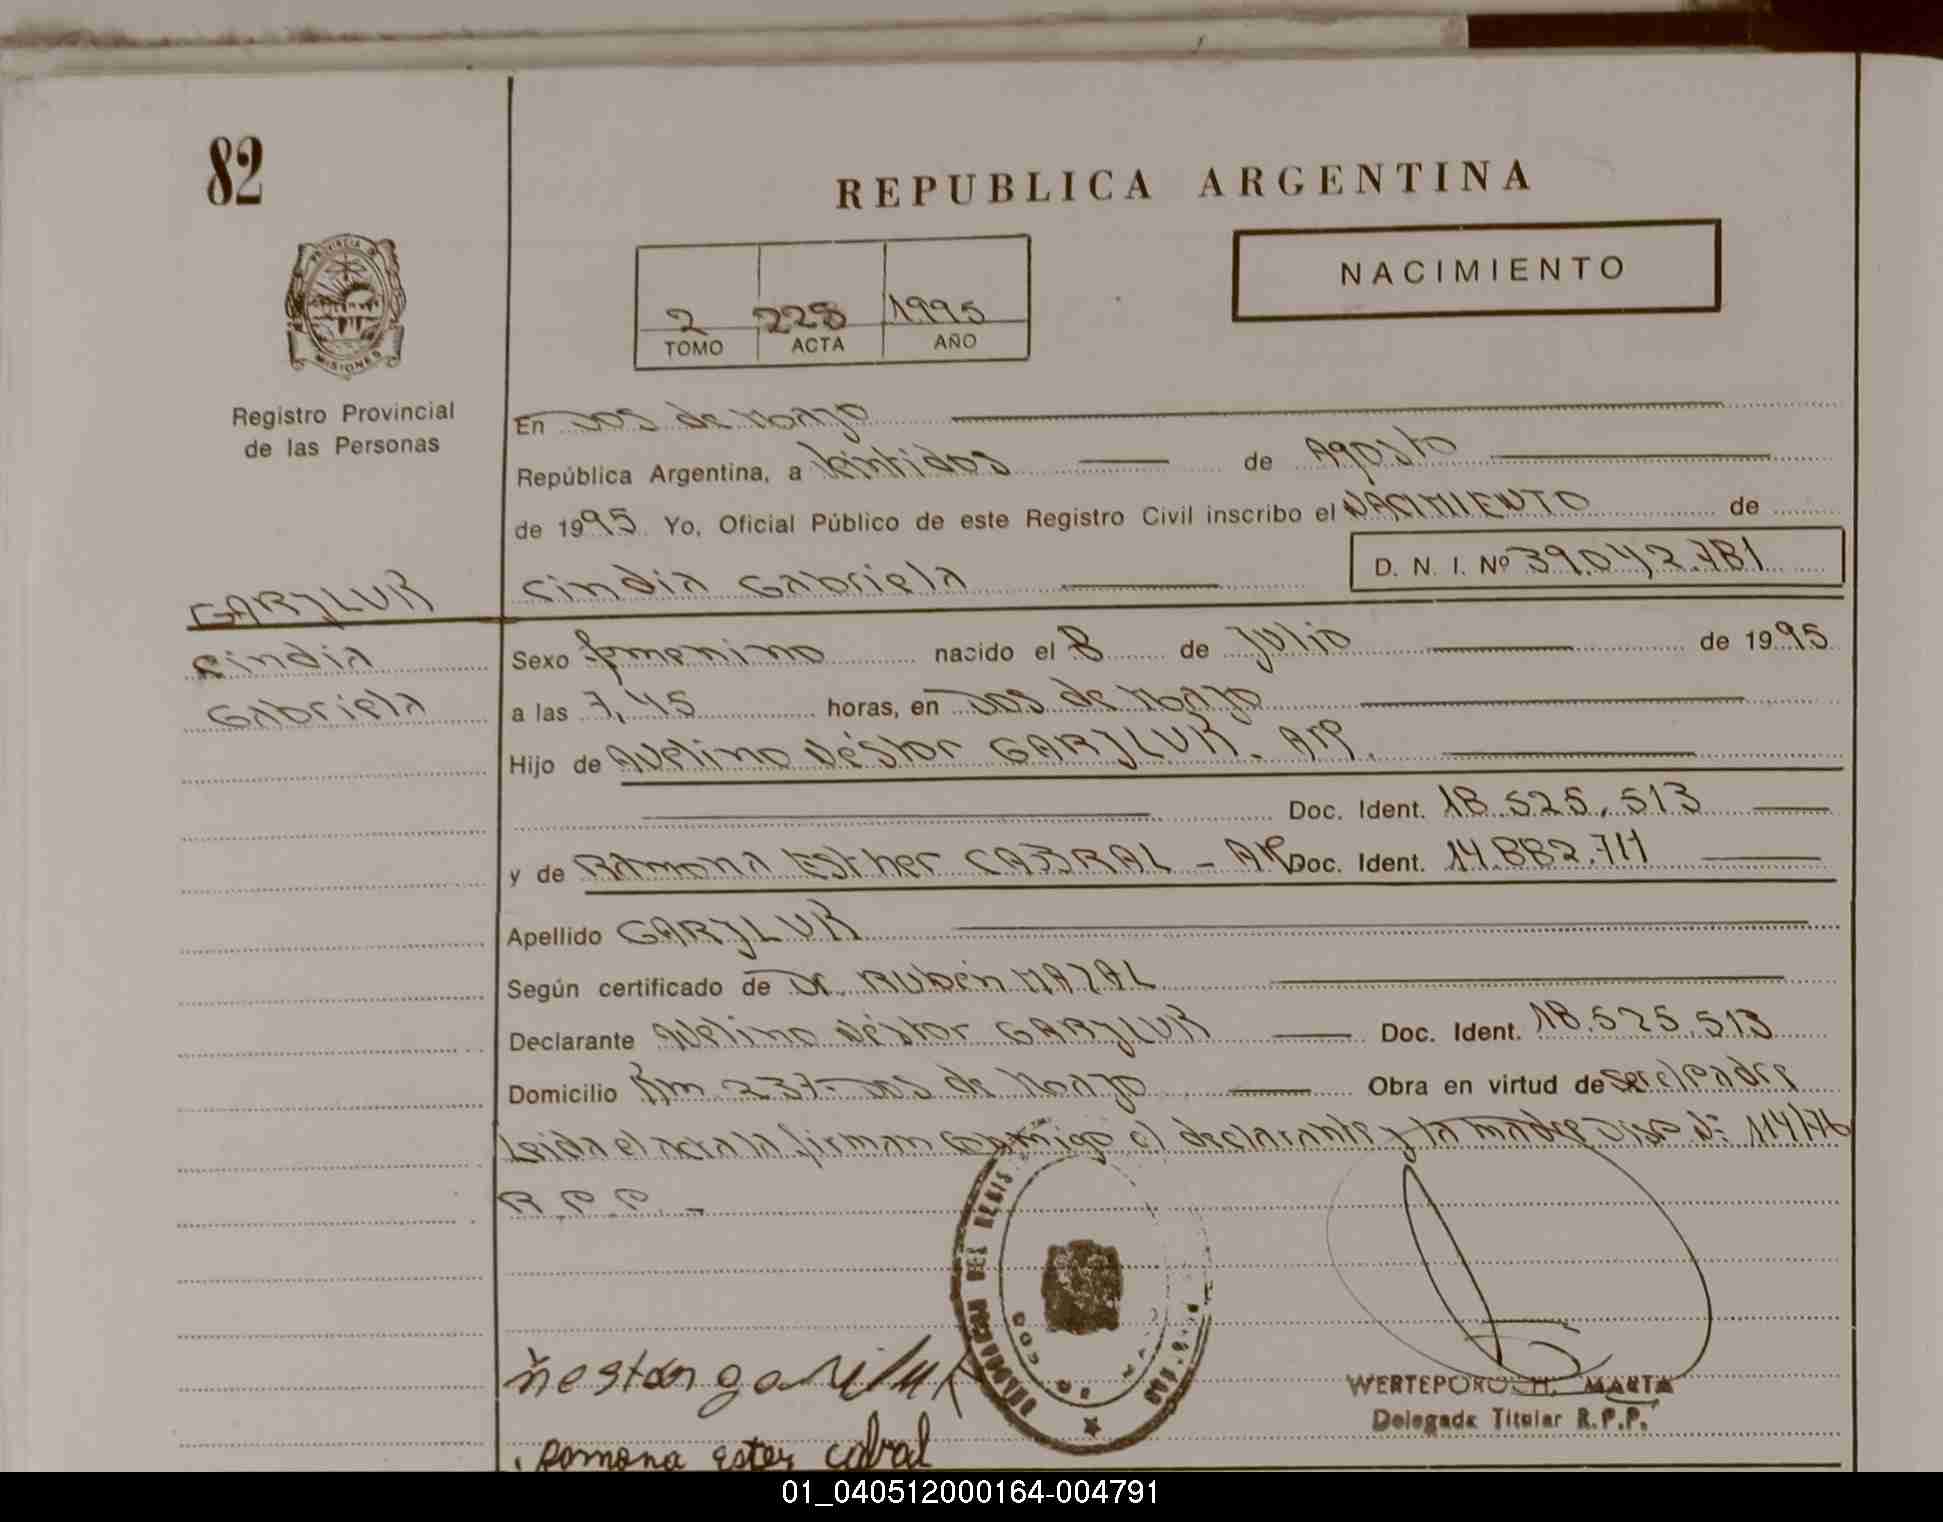 82
REPUBLICA ARGENTINA
NACIMIENTO
PROVINCIA DE
MISIONES
2 228 1995
TOMO ACTA AÑO
Registro Provincial
de las Personas
En Dos de Mayo
República Argentina, a Veintidos de Agosto
de 1995 Yo, Oficial Público de este Registro Civil inscribo el NACIMIENTO de
D. N. I. Nº 39.042.781
Cindia Gabriela
GARJLUK
Cindia
Gabriela
Sexo femenino nacido el 8 de Julio de 1995
a las 7,45 horas, en Dos de Mayo
Hijo de Avelino Néstor GARJLUK - Arg.
Doc. Ident. 18.525.513
y de Ramona Esther CABRAL - Ar Doc. Ident. 14.882.711
Apellido GARJLUK
Según certificado de Dr. Rubén MAZAL
Declarante Avelino Néstor GARJLUK Doc. Ident. 18.525.513
Domicilio Km 237-Dos de Mayo Obra en virtud de ser el Padre
Leida el acta la firman conmigo el declarante y la madre Disp Nº 114/76
R.P.P.-
DEL REGIS
nestor gariluk
WERTEPOROCH, MARTA
Delegada Titular R.P.P.
Ramona ester cabral
01_040512000164-004791